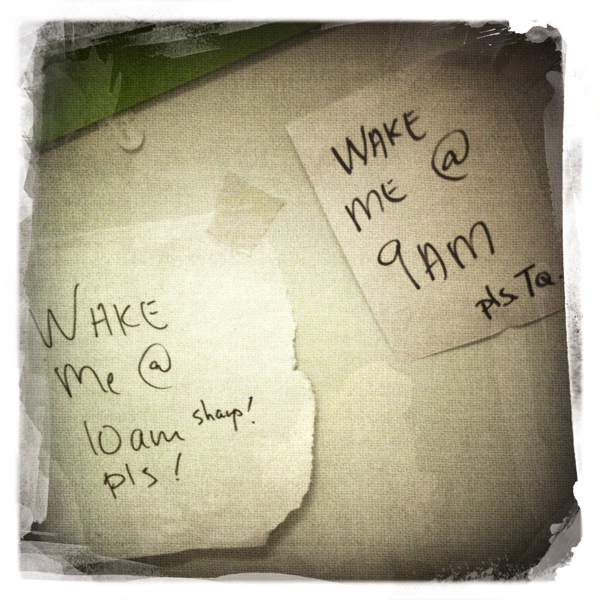 WAKE
Me @
10am sharp!
pls!
WAKE
ME @
9AM
pls TQ.